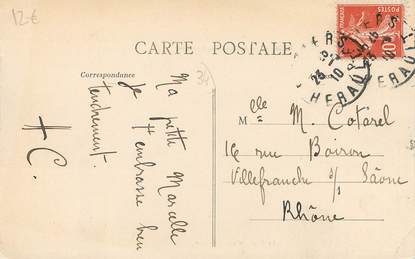 12-€
CARTE POSTALE
Correspondance
34
Ma petite Marcelle
Je t'embrasse bien
tendrement.
C.
Mlle M. Cotarel
16 rue Boiron
Villefranche s/ Saône
Rhône
POSTES
10
HERAULT